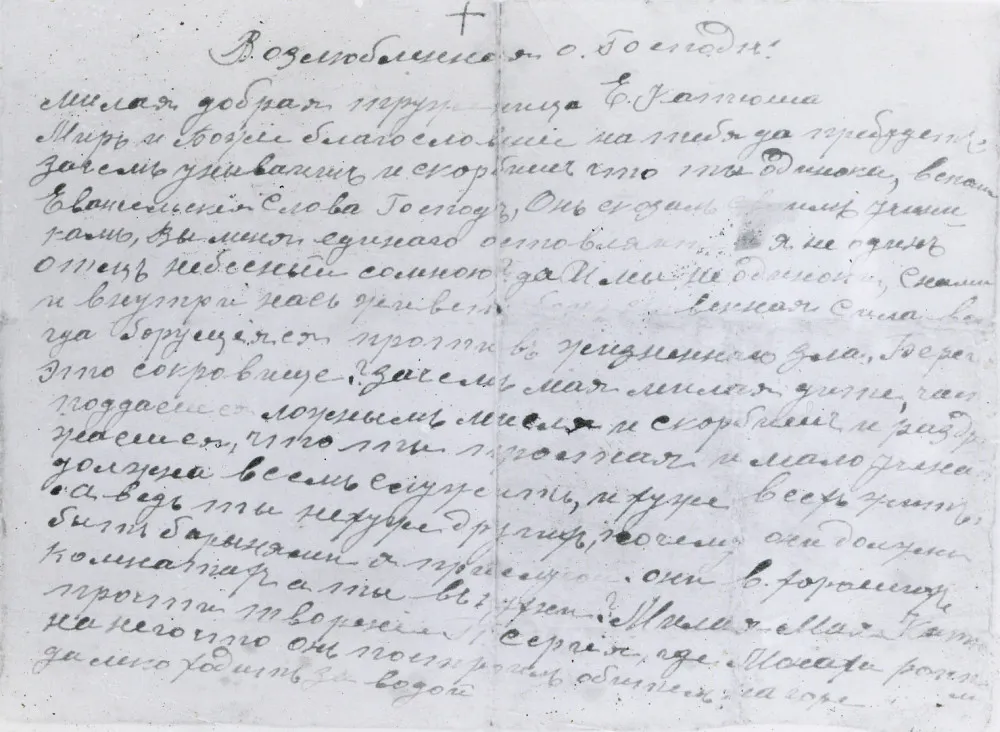 Возлюбленная о. Господи!
милая добрая труженица Е. Катюша
Миръ и Божие благословение на тебя да пребудетъ
зачемъ унываишъ и скорбишъ что ты одинока, вспом
Евангельския Слова Господъ, Онъ сказалъ своимъ учени
камъ, Вы меня единаго оставляите я не одинъ
отецъ небесный сомною да И мы не одиноки, Снами
и внутри насъ живетъ венная Сила
гда борущеяся противъ жизненнаго зла. Берег
Это сокровище? зачемъ мая милая дитя,
поддаешся ложнымъ мысля и скорбишъ и раздр
жаешся, что ты простая и мало учена
должна всемъ служить, и хуже всехъ жить,
а ведь ты нехуже другихъ, почему они должны
быть барынями а прислугой. они в. хорошихъ
комнатахъ а ты въ кухни? Милая Мая Катю
прочти творение П Сергия, где Монахи ропта
на него что он построилъ обитель на горе
далеко ходить за водой